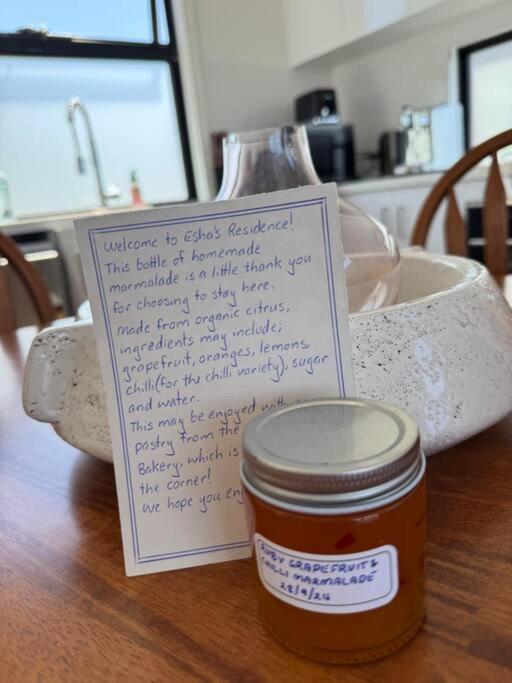 Welcome to Esha's Residence!
This bottle of homemade
marmalade is a little thank you
for choosing to stay here.
made from organic citrus,
ingredients may include;
grapefruit, oranges, lemons,
chilli (for the chilli variety), sugar
and water.
This may be enjoyed with
pastry from the
Bakery, which is
the corner!
We hope you
RUBY GRAPEFRUIT &
CHILLI MARMALADE
28/9/24